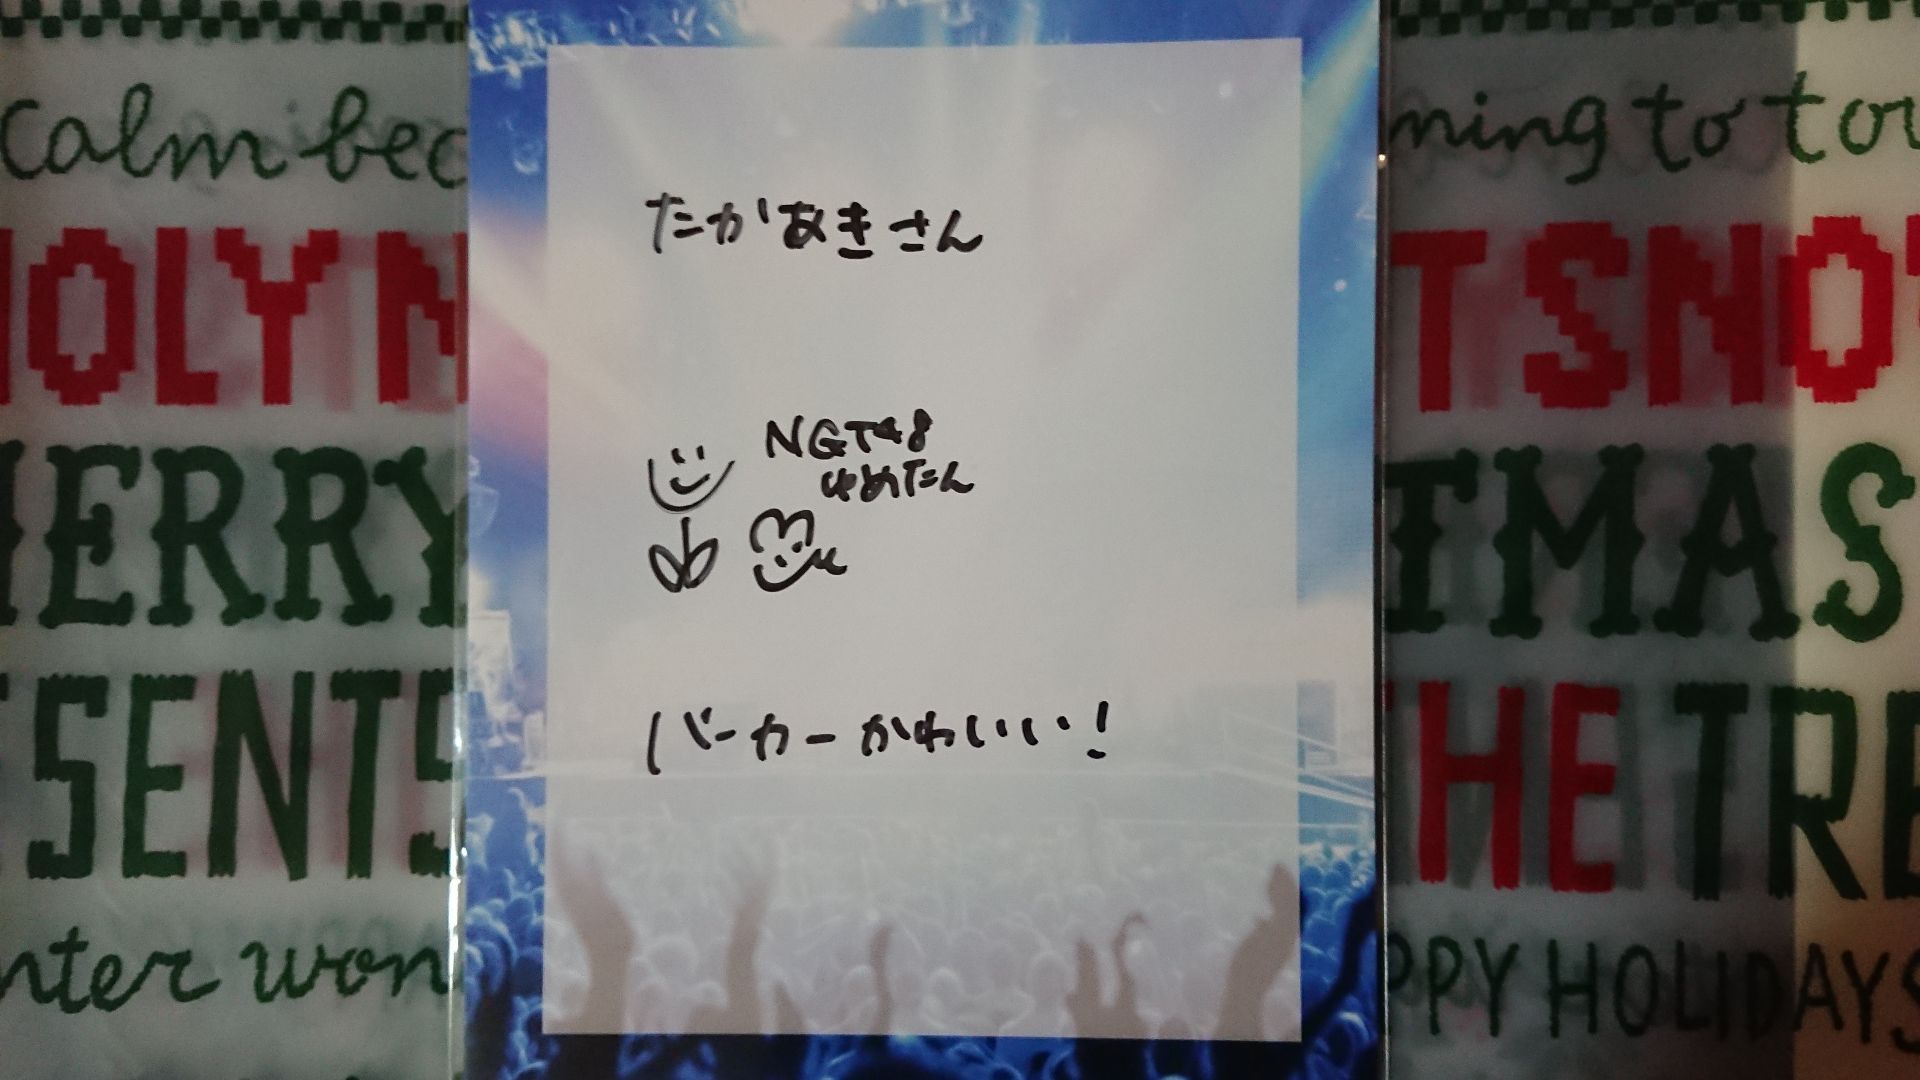 calm bec
OLY N
ERRY
SENTS
nter won
たかあきさん
NGT48
ゆめたん
パーカーかわいい!
ning to tou
TSNOT
TMAS
HE TRE
PPY HOLIDAYS